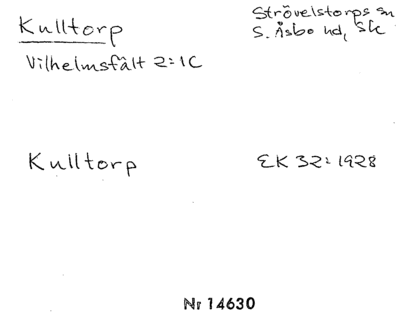 Kulltorp
Strövelstorps sn
S. Åsbo hd, Sk
Vilhelmsfält 2:1C
Kulltorp
EK 32:1928
Nr 14630